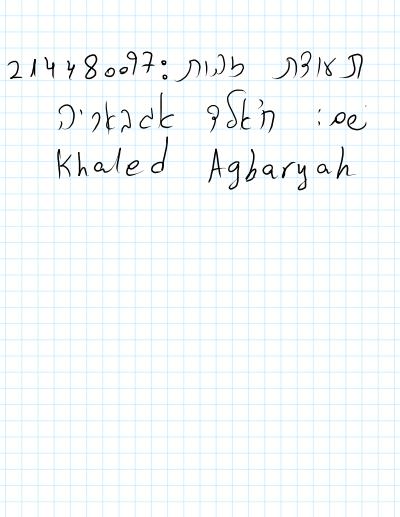 תעודת זהות: 214480097
שם: ח'אלד אגבאריה
Khaled Agbaryah